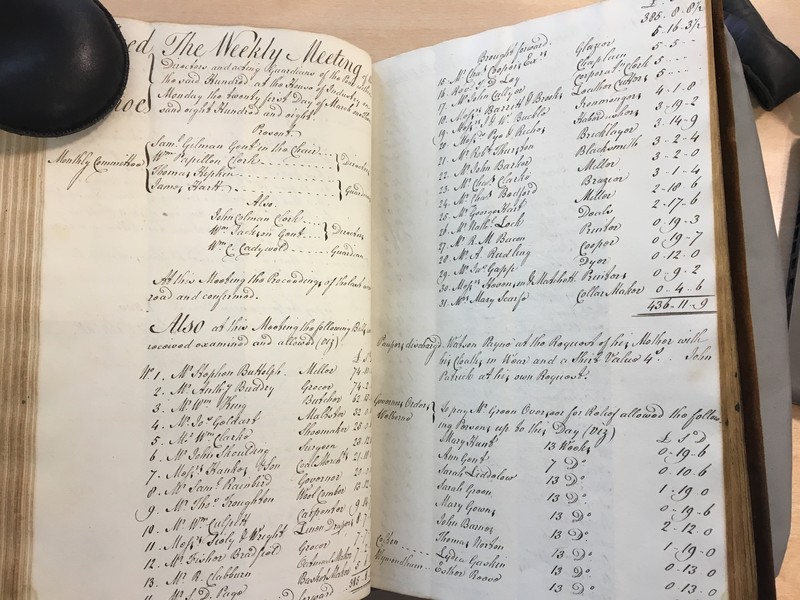 The Weekly Meeting of the
Directors and acting Guardians of the Poor within
the said Hundred at the House of Industry on
Monday the twenty first Day of March one thou
sand eight Hundred and eight
Present
Monthly Committee
Saml. Gilman Gent in the Chair
Wm. Papillon Clerk
Directors
Thomas Hipkin
James Hart
Guardians
Also
John Gilman Clerk
Wm. Jackson Gent
Directors
Guardian
At this Meeting the Proceedings of the last were
read and confirmed.
Also at this Meeting the following Bills were
received examined and allowed (viz)
No. 1. Mr. Stephen Buttolph Miller
2. Mr. Anthy. Budrey Grocer
3. Mr. Wm. King Butcher
4. Mr. Jos. Goldart Malster
5. Mr. Wm. Clarke Shoemaker
6. Mr. John Skoulding Surgeon
7. Messrs. & Son Coal Merchts.
8. Mr. Saml. Rainbird Governor
9. Mr. Thos. Troughton Wool Comber
10. Mr. Wm. Culpitt Carpenter
11. Messrs. & Wright Linen Drapers
12. Mr. Fisher Bradford Grocer
13. Mr. R. Clabburn
Mr. Page Basket Maker
forward
Brought forward 385-8-8½
15. Mr. Chas. Cooper's Exrs. Glazier 5-16-3½
16. Revd. Loy Chaplain 5-5-
17. Mr. John Collyer Corporatn. Clerk 5-
18. Messrs. Barrett & Brooks Leather Cutters 5-
19. Messrs. J & W. Buckle Ironmongers 4-1-8
20. Messrs. Pye & Riches Haberdashers 3-19-2
21. Mr. Robt. Thurston Bricklayer 3-14-9
22. Mr. John Barker Blacksmith 3-2-4
23. Mr. Chas. Clarke Miller 3-2-0
24. Mr. Chas. Bedford Brazier 3-1-4
25. Mr. George Hart Miller 2-18-6
26. Mr. Nathl. Lock Deals 2-17-6
27. Mr. R. M. Bacon Printer 0-19-3
28. Mr. A. Rudling Cooper 0-19-7
29. Mr. Jos. Gapp Dyer 0-12-0
30. Messrs. Stevenson & Matchett Printers 0-9-2
31. Mrs. Mary Scarfe Collar Maker 0-4-6
436-11-9
Paupers discharged. Watson Payne at the Request of his Mother with
his Cloaths in Wear and a Shirt Value 4s. John
Patrick at his own Request.
Governor Orders
To pay Mr. Green Overseer for Relief allowed the follow
ing Persons up to this Day (viz) £ S D
Mary Hunt 13 Weeks 0-19-6
Ann Gent 7 Do. 0-10-6
Sarah Liddelow 13 Do. 1-19-0
Sarah Green 13 Do. 0-19-6
Mary Gowing 13 Do. 2-12-0
John Barnes 13 Do. 1-19-0
Thomas Norton 13 Do. 0-13-0
Lydia Gaskin 13 Do. 0-13-0
Wymondham
Esther Roome